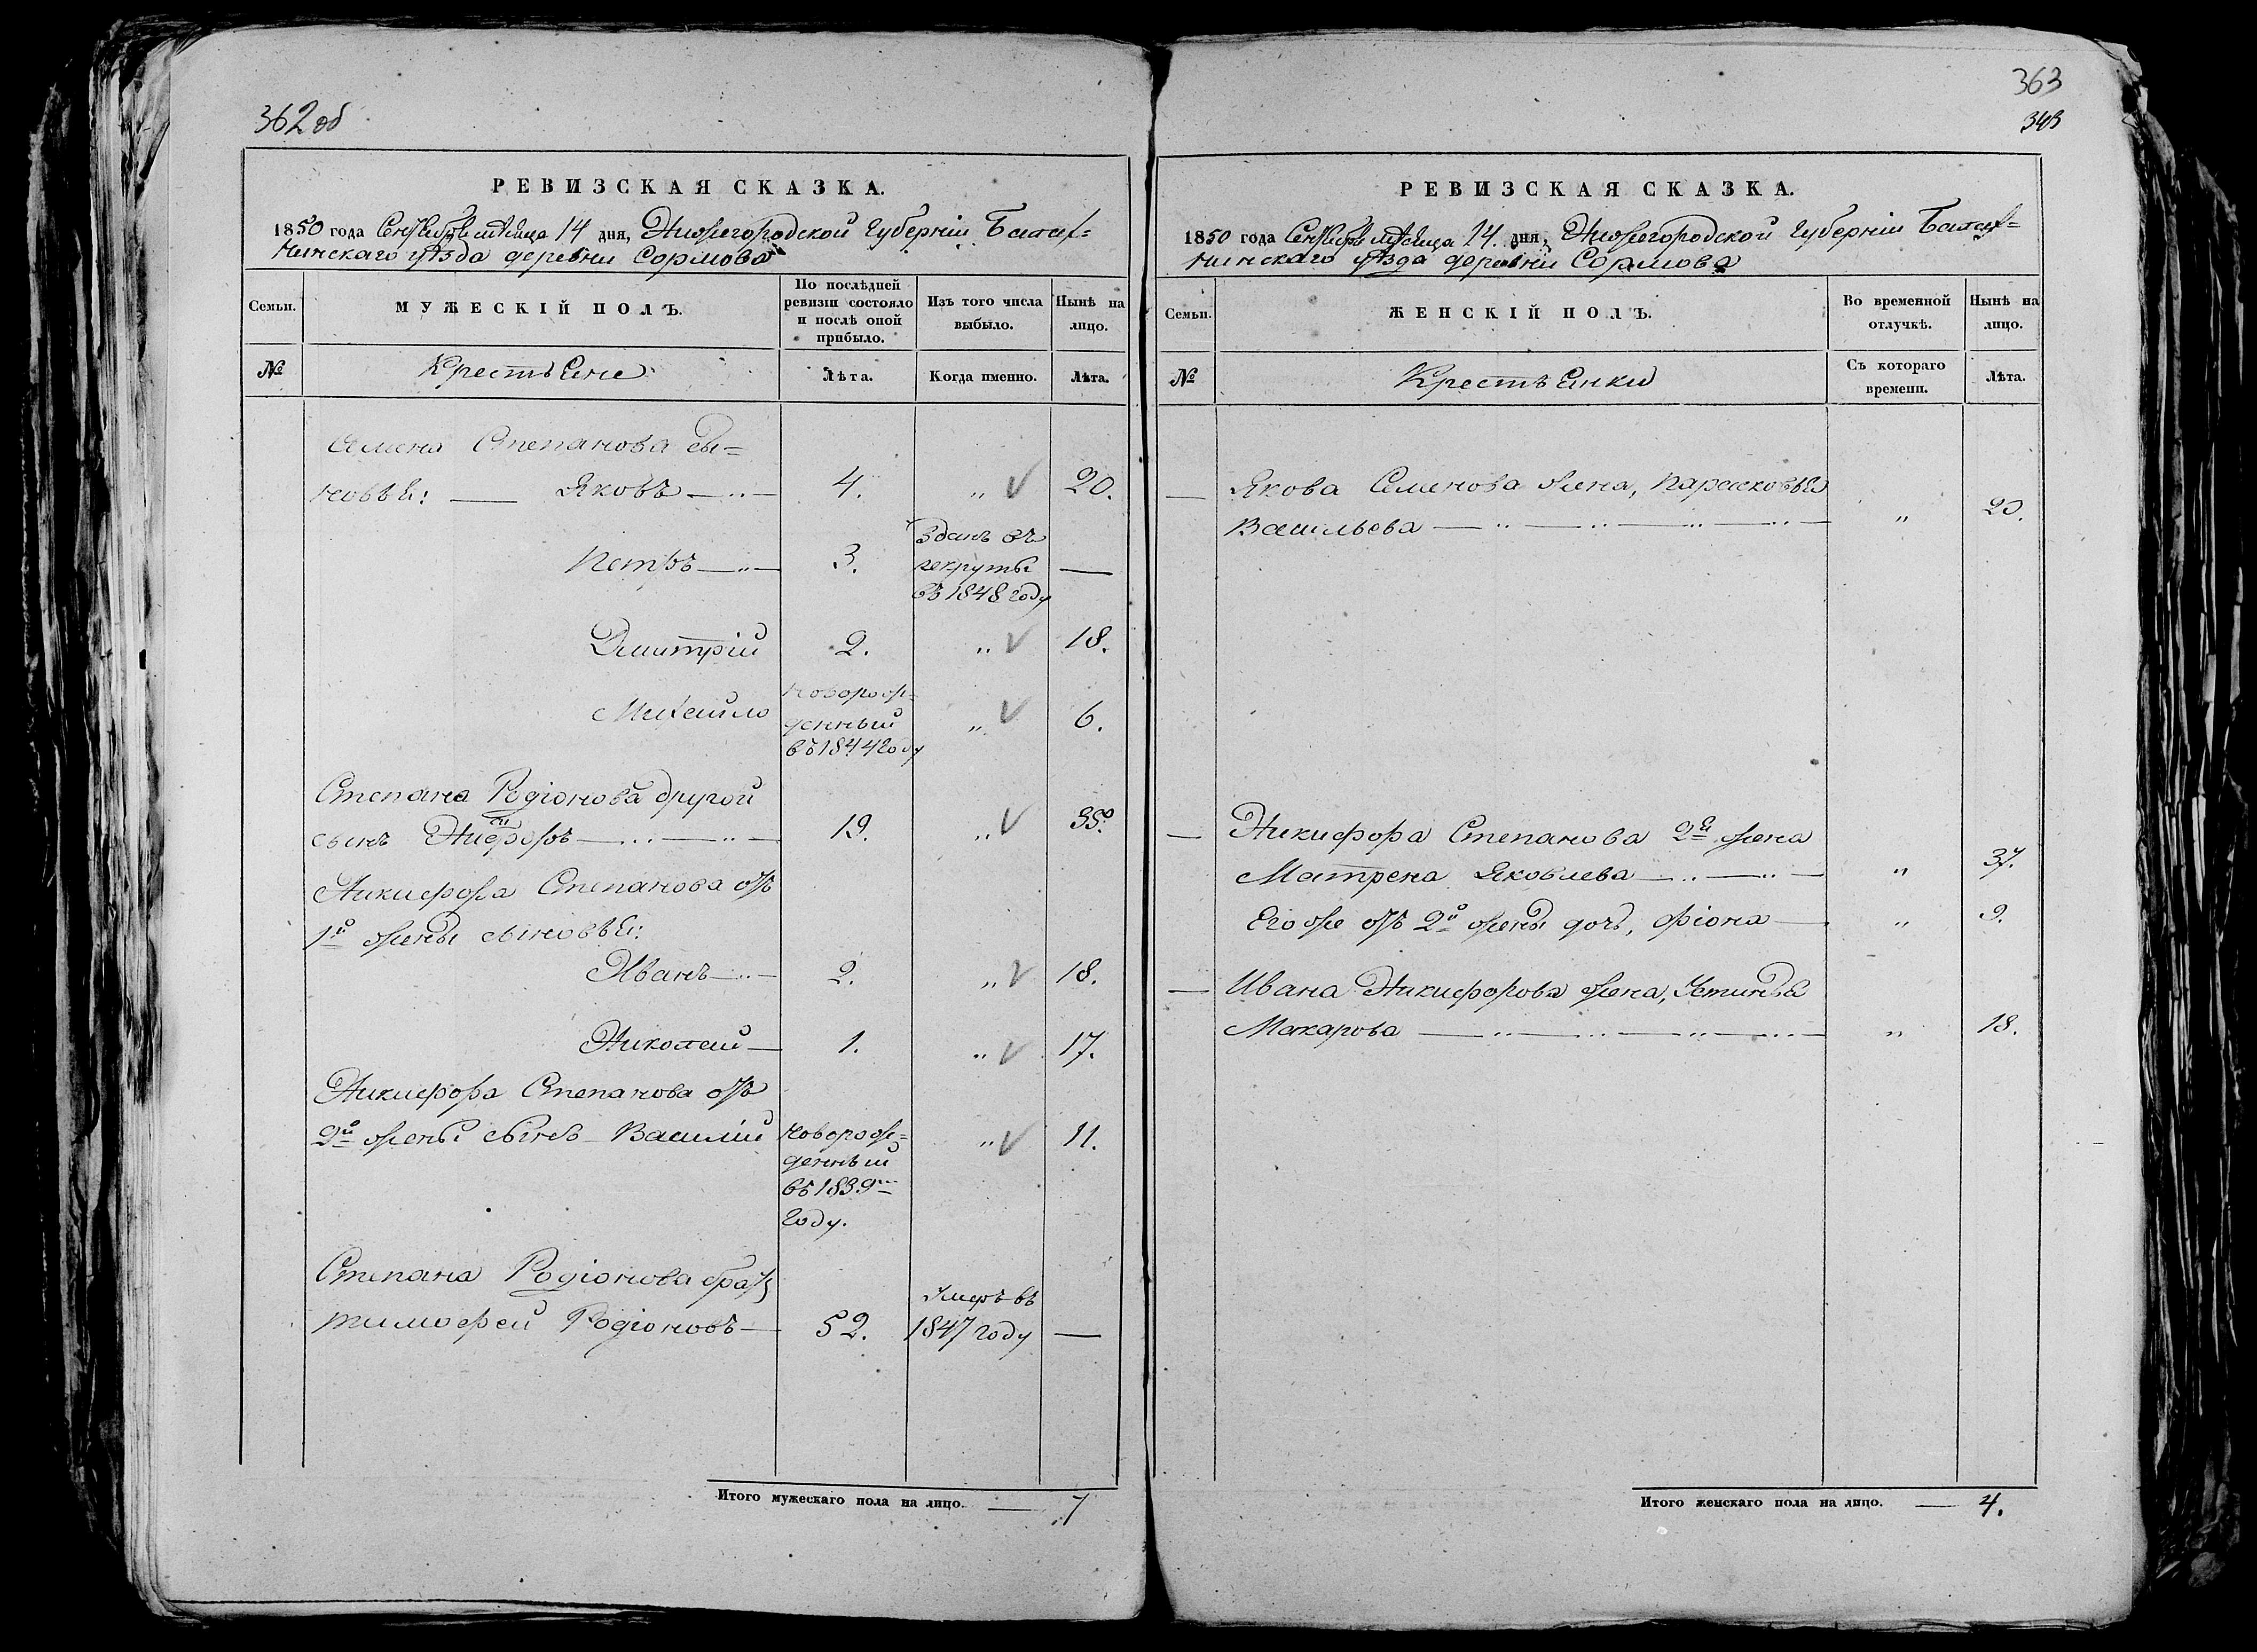 362 об
РЕВИЗСКАЯ СКАЗКА.
1850 года Сентября мѣсяца 14 дня, Нижегородской Губерніи Балах=
нинскаго уѣзда деревни Сормова
Семьи.
МУЖЕСКІЙ ПОЛЪ.
По послѣдней
ревизіи состояло
и послѣ оной
прибыло.
Изъ того числа
выбыло.
Нынѣ на
лицо.
№
Крестьяне
Лѣта.
Когда именно.
Лѣта.
Семена Степанова сы=
новья: — Яковъ — 4. „ 20.
Петръ — 3. Зданъ въ
рекруты
въ 1848 году —
Дмитрій 2. „ 18.
Михайло Новорож=
денный
въ 1844 году „ 6.
Степана Родіонова другой
сынъ Никифоръ — 19. „ 35.
Никифора Степанова отъ
1й жены сыновья:
Иванъ — 2. „ 18.
Николай — 1. „ 17.
Никифора Степанова отъ
2й жены сынъ Василій Новорож=
денный
въ 1839м
году. „ 11.
Степана Родіонова братъ
Тимофей Родіоновъ — 52. Умеръ въ
1847 году —
Итого мужескаго пола на лицо. — 7
363
343
РЕВИЗСКАЯ СКАЗКА.
1850 года Сентября мѣсяца 14. дня, Нижегородской Губерніи Балах=
нинскаго уѣзда деревни Сормова
Семьи.
ЖЕНСКІЙ ПОЛЪ.
Во временной
отлучкѣ.
Нынѣ на
лицо.
№
Крестьянки
Съ котораго
времени.
Лѣта.
— Якова Семенова жена, Парасковья
Васильева — „ 20.
— Никифора Степанова 2я жена
Матрена Яковлева — „ 37.
Его же отъ 2й жены дочь, Фіона — „ 9.
— Ивана Никифорова жена, Устинья
Макарова — „ 18.
Итого женскаго пола на лицо. — 4.